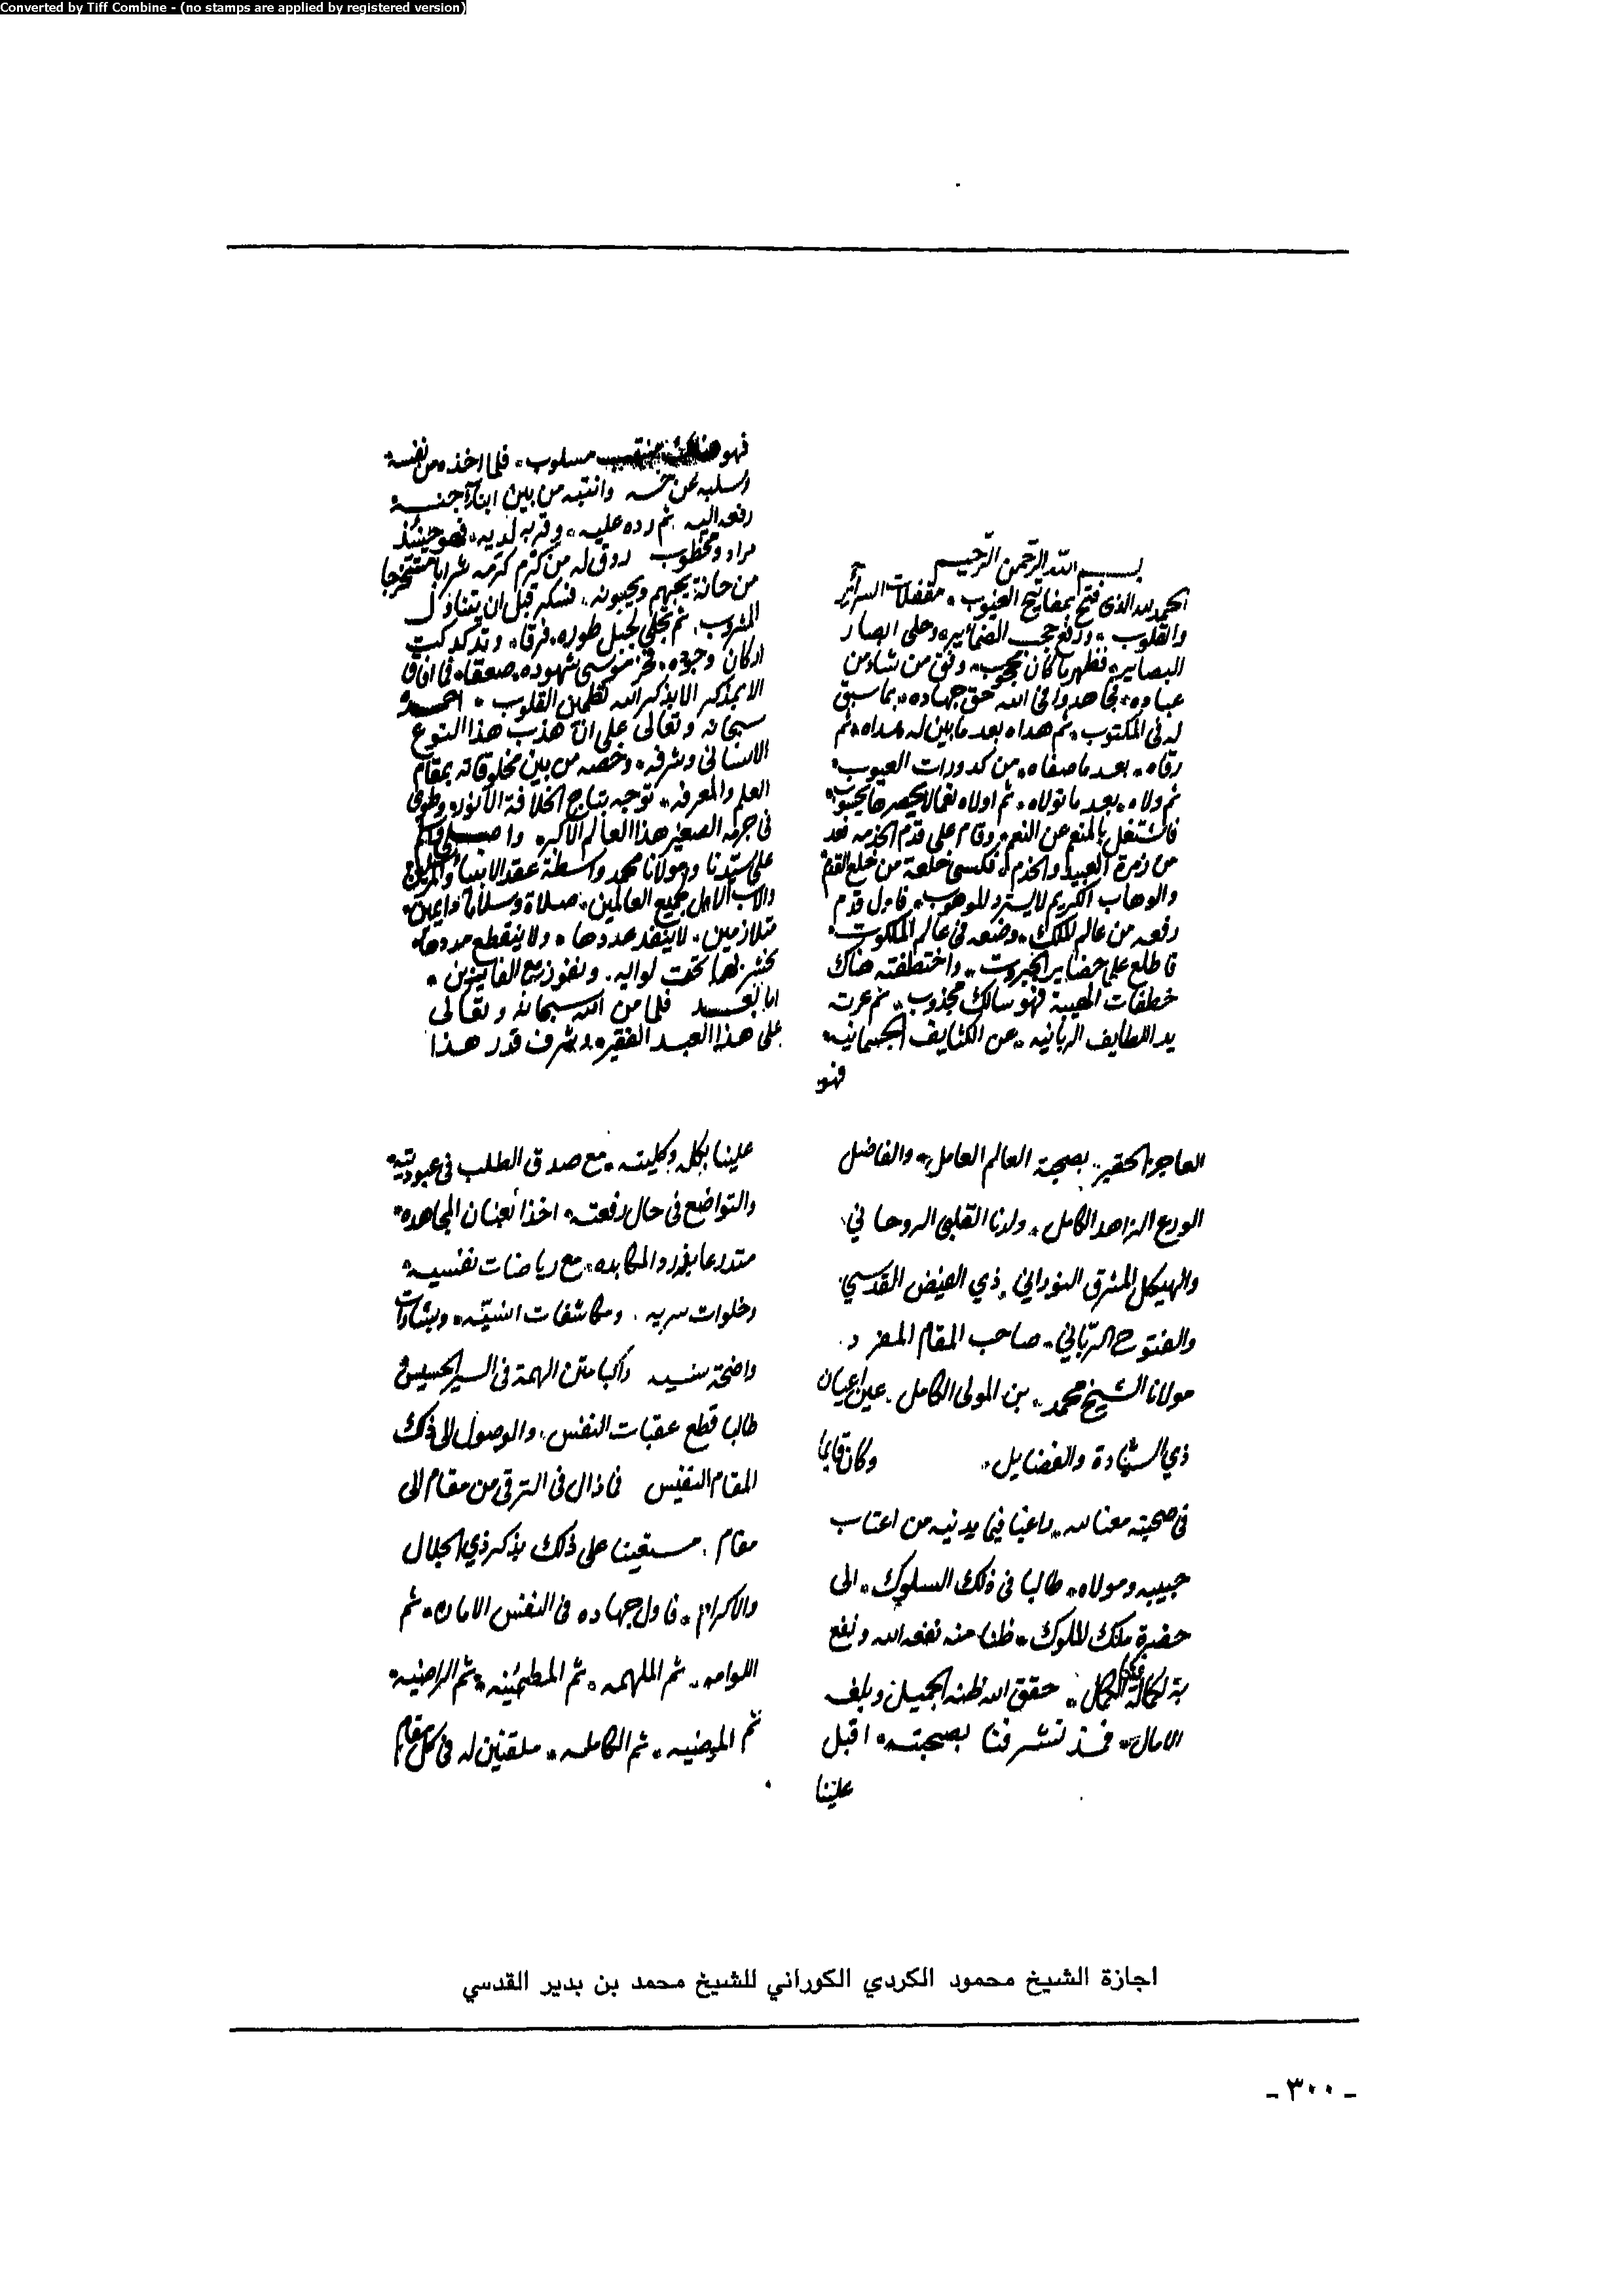 Converted by Tiff Combine - (no stamps are applied by registered version)
بسم الله الرحمن الرحيم
الحمد لله الذى فتح بمفاتيح الغيوب مقفلات السرائر
والقلوب ورفع حجب الضماير وجلى ابصار
البصاير فظهر ما كان محجوب ووفق من شاء من
عباده فجاهدوا فى الله حق جهاده بما سبق
له فى المكتوب ثم هداه بعد ما بين له هداه ثم
رقاه بعد ما صفاه من كدورات العيوب
ثم ولاه بعد ما تولاه ثم اولاه نعما لا يحصرها
فاشتغل بالمنعم عن النعم وقام على قدم الخدمه فعد
من زمرة العبيد والخدم فكسى خلعة من خلع القدم
والوهاب الكريم لا يسترد الموهوب فاول قدم
رفعه من عالم الملك وضعه فى عالم الملكوت
فاطلع على حضاير الجبروت واختطفته هناك
خطفات الهيبة فهو سالك مجذوب ثم عرت
يد اللطايف الربانيه عن الكثايف الجسمانيه
فهو
فهو مسلوب فلما اخذه من نفسه
وسلبه عن حسه وانتبه من بين ابناء جنسه
رفعه اليه ثم رده عليه وقربه لديه فهو حينئذ
مراد ومخطوب روق له من كرم كرمه شرابا
من حانة يحبهم ويحبونه فسكر قبل ان يتناول
المشروب ثم تجلى لجبل طوره فرقا وتدكدكت
اركان وجوده فخر موسى شهوده صعقا فى افاق
الا بذكر الله تطمئن القلوب احمده
سبحانه وتعالى على ان هذب هذا النوع
الانسانى وشرفه وخصه من بين مخلوقاته بمقام
العلم والمعرفه توجه بتاج الخلافة الانور وطوى
فى جرمه الصغير هذا العالم الاكبر واصلى واسلم
على سيدنا ومولانا محمد واسطة عقد الانبيا والمرسلين
والاب الاصل لجميع العالمين صلاة وسلاما دايمين
متلازمين لا ينفد عددها ولا ينقطع مددها
نحشر بها تحت لوايه ونفوز مع الفايزين
اما بعد فلما من الله سبحانه وتعالى
على هذا العبد الفقير وشرف قدر هذا
العاجز الحقير بصحبة العالم العامل والفاضل
الورع الزاهد الكامل ولدنا القلبى الروحاني
والهيكل المشرق النوراني ذي الفيض القدسي
والفتوح الرباني صاحب المقام المفرد
مولانا الشيخ محمد بن المولى الكامل عين اعيان
ذي الشهادة والفضايل وكان قايما
فى صحبته معنا لله راغبا فيما يدنيه من اعتاب
حبيبه ومولاه طالبا فى ذلك السلوك الى
حضرة ملك الملوك ظنا منه نفعه الله ونفع
به حقق الله ظنه الجميل وبلغه
الامال فمذ تشرفنا بصحبته اقبل
علينا
علينا بكله وكليته مع صدق الطلب فى عبوديته
والتواضع فى حال رفعته اخذا بعنان المجاهده
متدرعا المكابده مع رياضات نفسيه
وخلوات سريه ومكاشفات انسيه وبشارات
واضحة سنيه راكبا متن الهمة فى السير الحسيس
طالبا قطع عقبات النفس والوصول الى ذلك
المقام النفيس فما زال فى الترقى من مقام الى
مقام مستعينا على ذلك بذكر ذي الجلال
والاكرام فاول جهاده فى النفس الاماره ثم
اللوامه ثم الملهمه ثم المطمئنه ثم الراضيه
ثم المرضيه ثم الكامله ملقنين له فى كل مقام
اجازة الشيخ محمود الكردي الكوراني للشيخ محمد بن بدير القدسي
- ٣٠٠ -